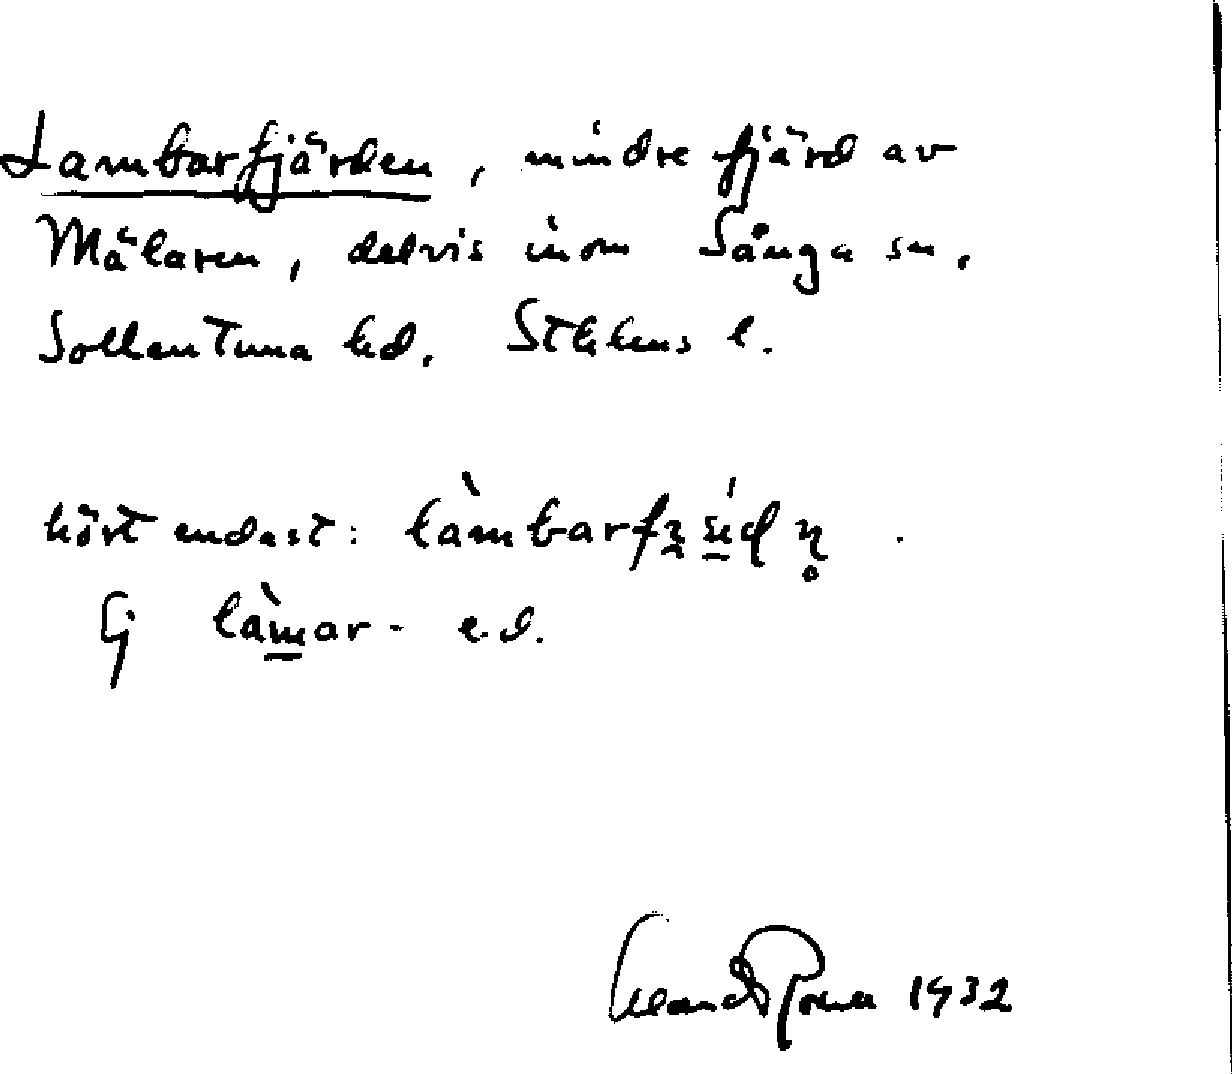 Lambarfjärden, mindre fjärd av
Mälaren, delvis inom Sånga sn,
Sollentuna hd, Sthlms l.
hört endast:
Ej làmar- e.d.
1932